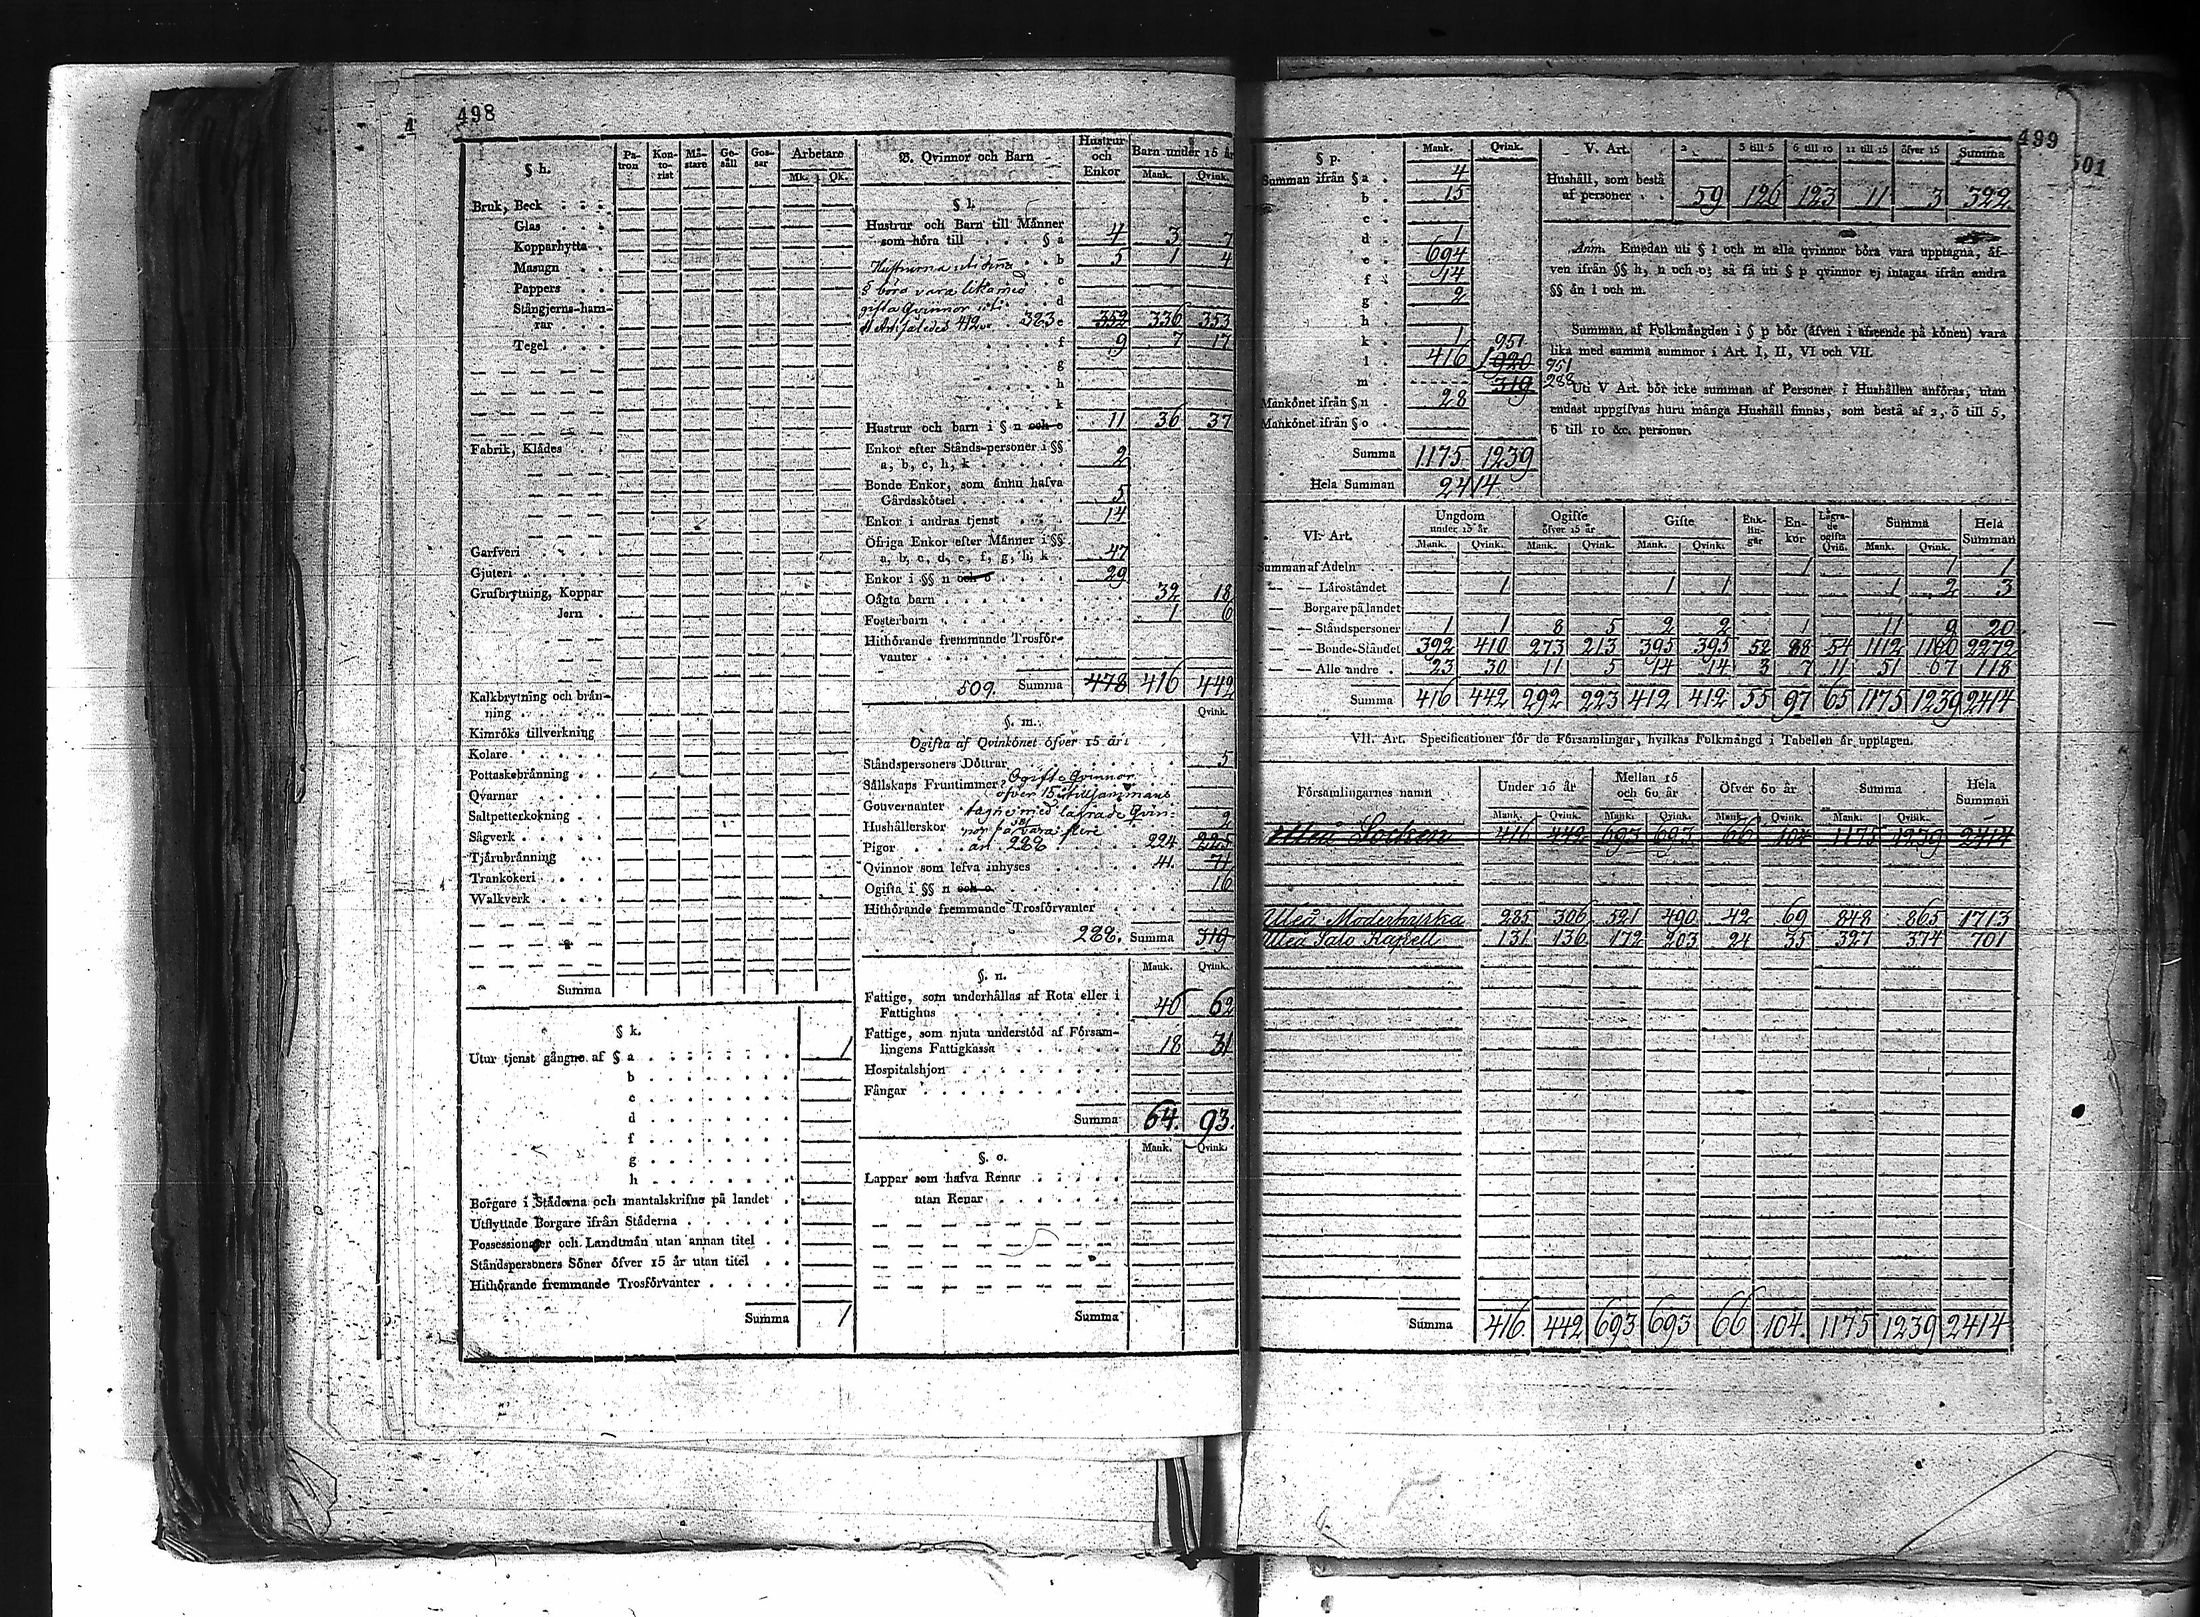 498
4
§ h.
Pa-tron Kon-to-rist Mä-stare Ge-säll Gos-sar Arbetare
Mk. Qk.
Bruk, Beck
Glas
Kopparhytta
Masugn
Pappers
Stångjerns-ham-
rar
Tegel
Fabrik, Klädes
Garfveri
Gjuteri
Grufbrytning, Koppar
Jern
Kalkbrytning och brän-
ning
Kimröks tillverkning
Kolare
Pottaskebränning
Qvarnar
Saltpetterkokning
Sågverk
Tjärubränning
Trankokeri
Walkverk
Summa
§ k.
Utur tjenst gångne af § a 1
b
c
d
f
g
h
Borgare i Städerna och mantalskrifne på landet
Utflyttade Borgare ifrån Städerna
Possessionater och Landtmän utan annan titel
Ståndspersoners Söner öfver 15 år utan titel
Hithörande fremmande Trosförvanter
Summa 1
B. Qvinnor och Barn Hustrur och Enkor Barn under 15 år
Mank. Qvink.
§ l.
Hustrur och Barn till Männer
som höra till § a 4 3 7
Hustrurna uti denna b 5 1 4
§ böra vara lika med c
gifta Qvinnor uti d
VI Art. således 412. 323 e 352 336 353
f 9 7 17
g
h
k
Hustrur och barn i § n och o 11 36 37
Enkor efter Stånds-personer i §§
a, b, c, h, k 2
Bonde Enkor, som ännu hafva
Gårdsskötsel 5
Enkor i andras tjenst 14
Öfriga Enkor efter Männer i §§
a, b, c, d, e, f, g, h, k 47
Enkor i §§ n och o 29
Oägta barn 32 18
Fosterbarn 1 6
Hithörande fremmande Trosför-
vanter
509. Summa 478 416 442
§. m. Qvink.
Ogifta af Qvinkönet öfver 15 år:
Ståndspersoners Döttrar 5
Sällskaps Fruntimmer Ogifta Qvinnor
öfver 15 år tillsammans
Gouvernanter tagne med lägrade Qvin-
Hushållerskor nor få ej vara flere 2
Pigor än 288 224 225
Qvinnor som lefva inhyses 41. 71
Ogifta i §§ n och o 16
Hithörande fremmande Trosförvanter
288. Summa 319
§. n. Mank. Qvink.
Fattige, som underhållas af Rota eller i
Fattighus 46 62
Fattige, som njuta understöd af Försam-
lingens Fattigkassa 18 31
Hospitalshjon
Fångar
Summa 64. 93.
§. o. Mank. Qvink.
Lappar som hafva Renar
utan Renar
Summa
499
501
§ p. Mank. Qvink.
Summan ifrån § a 4
b 15
c
d 1
e 694
f 14
g 2
h
k 1 951
l 416 1920 951
m 319 288
Mankönet ifrån § n 28
Mankönet ifrån § o
Summa 1175 1239
Hela Summan 2414
V. Art. 2 3 till 5 6 till 10 11 till 15 öfver 15 Summa
Hushåll, som bestå
af personer 59 126 123 11 3 322
Anm. Emedan uti § l och m alla qvinnor böra vara upptagna, äf-
ven ifrån §§ h, n och o; så få uti § p qvinnor ej intagas ifrån andra
§§ än l och m.
Summan af Folkmängden i § p bör (äfven i afseende på könen) vara
lika med samma summor i Art. I, II, VI och VII.
Uti V Art. bör icke summan af Personer i Hushållen anföras, utan
endast uppgifvas huru många Hushåll finnas, som bestå af 2, 3 till 5,
6 till 10 &c. personer.
VI. Art. Ungdom under 15 år Ogifte öfver 15 år Gifte Enk-lin-gar En-kor Lägra-de ogifta Qvin. Summa Hela Summan
Mank. Qvink. Mank. Qvink. Mank. Qvink. Mank. Qvink.
Summan af Adeln 1 1 1
— — Läroståndet 1 1 1 1 2 3
— Borgare på landet
— — Ståndspersoner 1 1 8 5 2 2 1 11 9 20
— — Bonde-Ståndet 392 410 273 213 395 395 52 88 54 1112 1160 2272
— — Alle andre 23 30 11 5 14 14 3 7 11 51 67 118
Summa 416 442 292 223 412 412 55 97 65 1175 1239 2414
VII. Art. Specificationer för de Församlingar, hvilkas Folkmängd i Tabellen är upptagen.
Församlingarnes namn Under 15 år Mellan 15 och 60 år Öfver 60 år Summa Hela Summan
Mank. Qvink. Mank. Qvink. Mank. Qvink. Mank. Qvink.
Uleå Socken 416 442 693 693 66 104 1175 1239 2414
Uleå Moderkyrka 285 306 521 490 42 69 848 865 1713
Uleå Salo Kapell 131 136 172 203 24 35 327 374 701
Summa 416 442 693 693 66 104. 1175 1239 2414